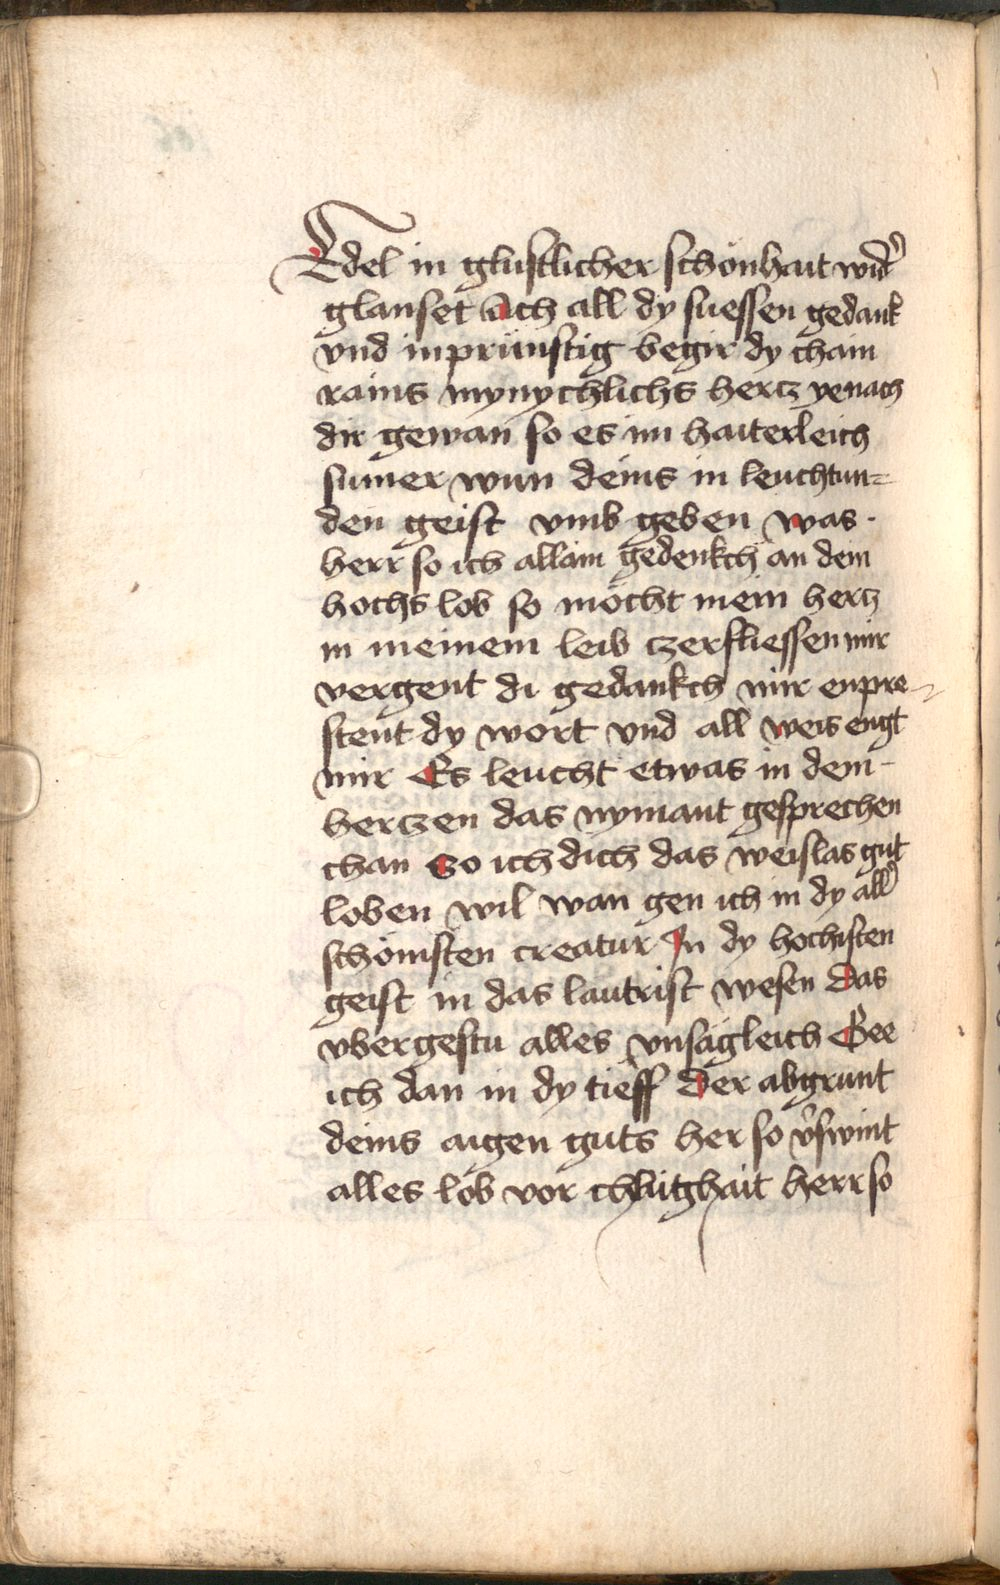 Edel in glustlicher schonhait wid͛
glanset Ach all dy suessen gedank
vnd inprünstig begir dy chain
rains mynychlichs hertz ye nach
dir gewan so es im haiterleich
sumer wun deins in leuchtun=
den geist vmb geben was ·
herr so ich allain gedenkch an dein
hochs lob so möcht mein hertz
in meinem leib czerfliessen mir
vergent di gedankch mir enpre-
stent dy wort vnd all weis engt
mir Es leucht etwas in dem
herczen das nymant gesprechen
chan So ich dich das weislas gut
loben wil wan gen ich in dy all͛
schönisten creatur In dy hochisten
geist in das lautrist wesen Das
vbergestu alles vnsägleich Gee
ich dan in dy tieff Der abgrunt
deins aigen guts her so v͛swint
alles lob vor chlughait herr so